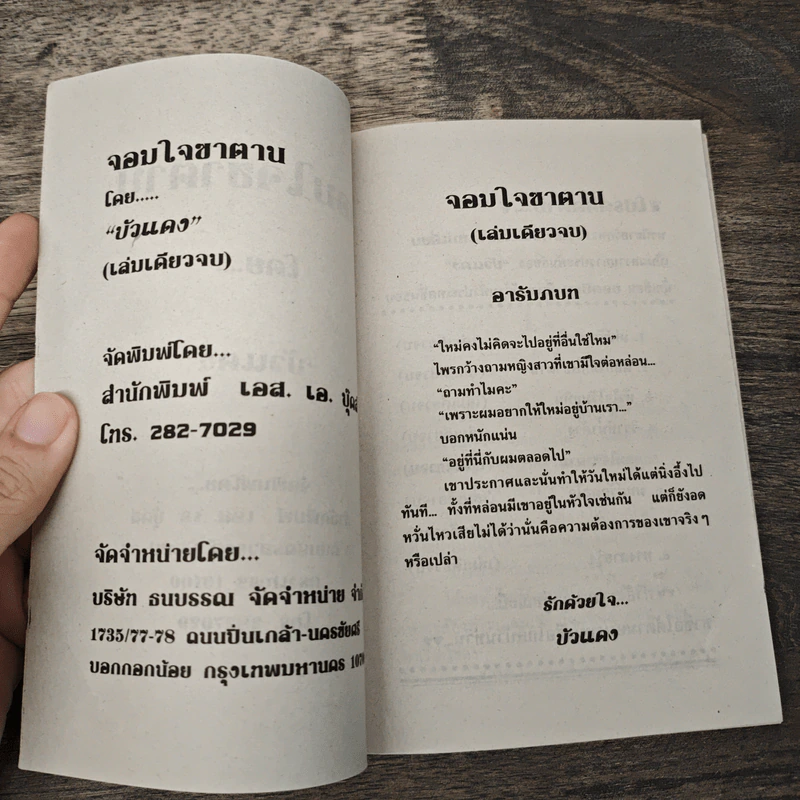 จอมใจซาตาน
โดย.....
“บัวแดง”
(เล่มเดียวจบ)
จัดพิมพ์โดย...
สำนักพิมพ์ เอส. เอ.
โทร. 282-7029
จัดจำหน่ายโดย...
บริษัท ธนบรรณ จัดจำหน่าย
1735/77-78 ถนนปิ่นเกล้า-นครชัยศรี
บอกกอกน้อย กรุงเทพมหานคร
จอมใจซาตาน
(เล่มเดียวจบ)
อารัมภบท
“ใหม่คงไม่คิดจะไปอยู่ที่อื่นใช่ไหม”
ไพรกว้างถามหญิงสาวที่เขามีใจต่อหล่อน...
“ถามทำไมคะ”
“เพราะผมอยากให้ใหม่อยู่บ้านเรา...”
บอกหนักแน่น
“อยู่ที่นี่กับผมตลอดไป”
เขาประกาศและนั่นทำให้วันใหม่ได้แต่นิ่งอึ้งไป
ทันที... ทั้งที่หล่อนมีเขาอยู่ในหัวใจเช่นกัน แต่ก็ยังอด
หวั่นไหวเสียไม่ได้ว่านั่นคือความต้องการของเขาจริง ๆ
หรือเปล่า
รักด้วยใจ...
บัวแดง